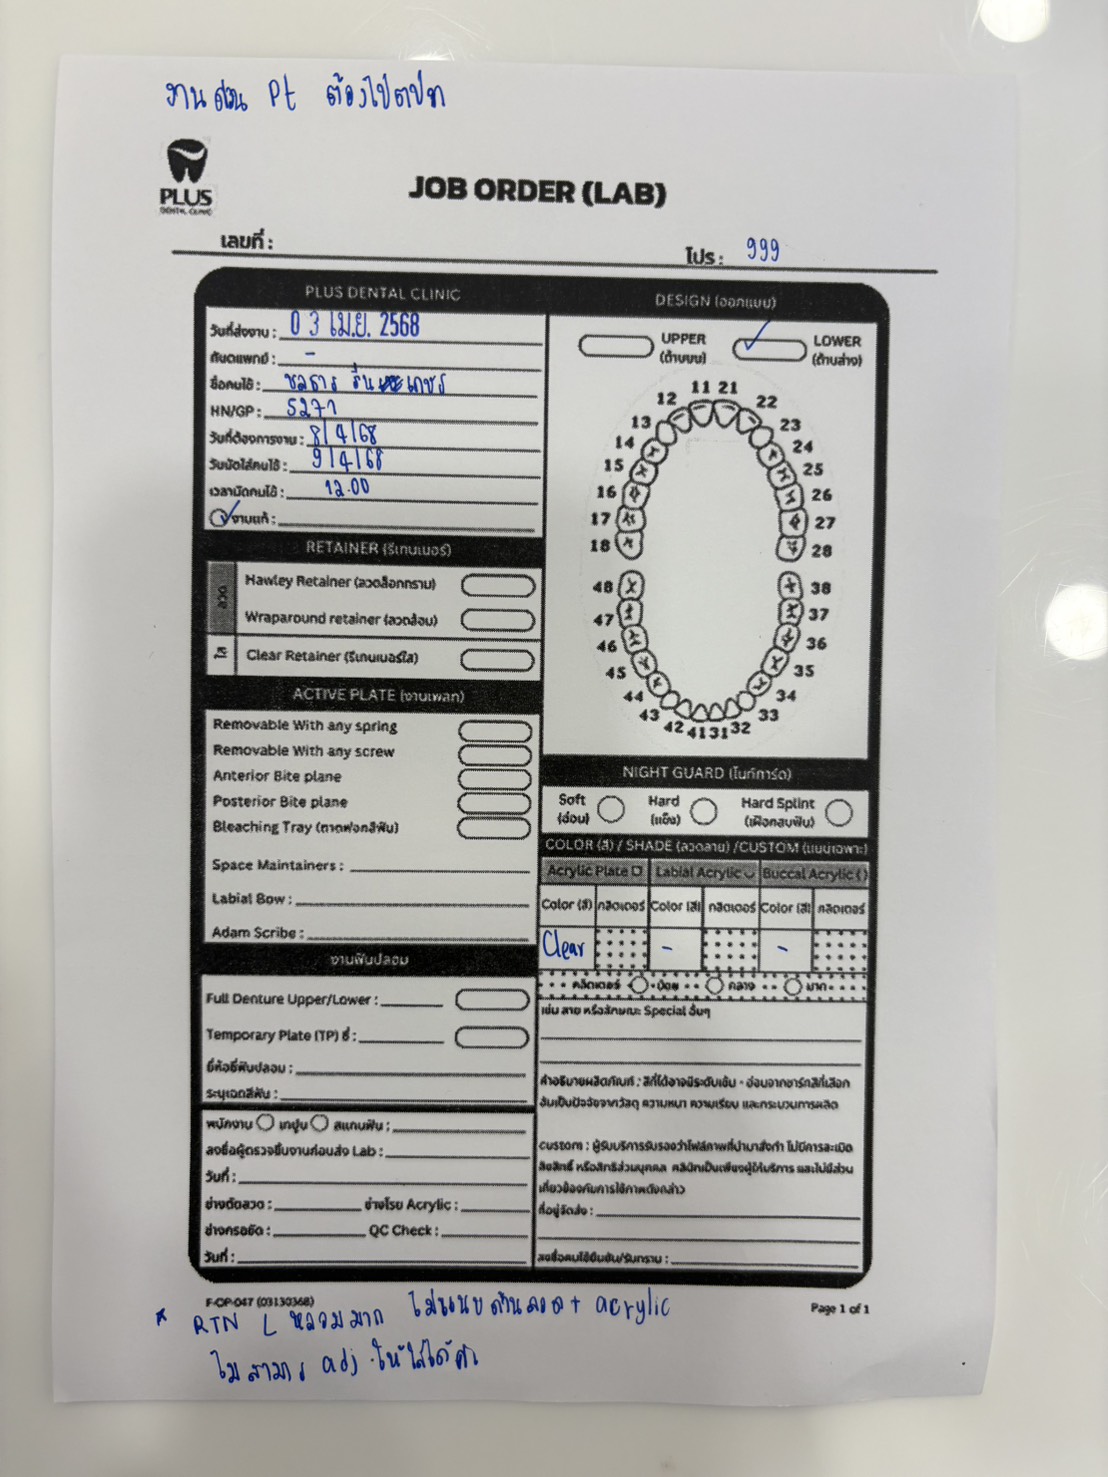 งานด่วน Pt ต้องไปตปท
PLUS
DENTAL CLINIC
JOB ORDER (LAB)
เลขที่ :
โปร : 999
PLUS DENTAL CLINIC
วันที่ส่งงาน : 03 เม.ย. 2568
ทันตแพทย์ : -
ชื่อคนไข้ : ชลธาร
HN/GP : 5271
วันที่ต้องการงาน : 8/4/68
วันนัดใส่คนไข้ : 9/4/68
เวลานัดคนไข้ : 12.00
งานแก้ :
RETAINER (รีเทนเนอร์)
ลวด
Hawley Retainer (ลวดล็อกกราม)
Wraparound retainer (ลวดล้อม)
ใส
Clear Retainer (รีเทนเนอร์ใส)
ACTIVE PLATE (งานเพลท)
Removable With any spring
Removable With any screw
Anterior Bite plane
Posterior Bite plane
Bleaching Tray (ถาดฟอกสีฟัน)
Space Maintainers :
Labial Bow :
Adam Scribe :
งานฟันปลอม
Full Denture Upper/Lower :
Temporary Plate (TP) ซี่ :
ยี่ห้อซี่ฟันปลอม :
ระบุเฉดสีฟัน :
พนักงาน เทปูน สแกนฟัน :
ลงชื่อผู้ตรวจชิ้นงานก่อนส่ง Lab :
วันที่ :
ช่างดัดลวด : ช่างโรย Acrylic :
ช่างกรอขัด : QC Check :
วันที่ :
DESIGN (ออกแบบ)
UPPER (ด้านบน)
LOWER (ด้านล่าง)
11 21
12 22
13 23
14 24
15 25
16 26
17 27
18 28
48 38
47 37
46 36
45 35
44 34
43 33
42 41 31 32
NIGHT GUARD (ไนท์การ์ด)
Soft (อ่อน) Hard (แข็ง) Hard Splint (เฝือกสบฟัน)
COLOR (สี) / SHADE (ลวดลาย) /CUSTOM (แบบเฉพาะ)
Acrylic Plate Labial Acrylic Buccal Acrylic ( )
Color (สี) กลิตเตอร์ Color (สี) กลิตเตอร์ Color (สี) กลิตเตอร์
Clear - -
กลิตเตอร์ น้อย กลาง มาก
เช่น ลาย หรือลักษณะ Special อื่นๆ
คำอธิบายผลิตภัณฑ์ : สีที่ได้อาจมีระดับเข้ม - อ่อนจากชาร์ทสีที่เลือก
อันเป็นปัจจัยจากวัสดุ ความหนา ความเรียบ และกระบวนการผลิต
custom : ผู้รับบริการรับรองว่าไฟล์ภาพที่นำมาสั่งทำ ไม่มีการละเมิด
ลิขสิทธิ์ หรือสิทธิส่วนบุคคล คลินิกเป็นเพียงผู้ให้บริการ และไม่มีส่วน
เกี่ยวข้องกับการใช้ภาพดังกล่าว
ที่อยู่จัดส่ง :
ลงชื่อคนไข้ยืนยัน/รับทราบ :
F-OP-047 (03130368)
Page 1 of 1
* RTN L หลวมมาก ไม่แนบด้านลวด + acrylic
ไม่สามารถ adj ให้ใส่ได้ค่ะ